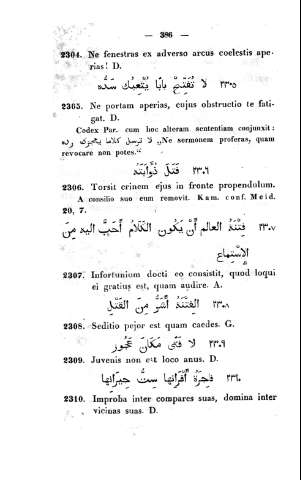 — 386 —
2304. Ne fenestras ex adverso arcus coelestis ape-
rias! D.
٢٣٠٥ لا تَفْتَحْ بابًا يُتْعِبُك سَدُّه
2305. Ne portam aperias, cujus obstructio te fati-
gat. D.
Codex Par. cum hoc alteram sententiam conjunxit:
لا ترسل كلاما يعجزك رده „Ne sermonem proferas, quam
revocare non potes.“
٢٣٠٦ فَتَلَ ذُوَابَتَه
2306. Torsit crinem ejus in fronte propendulum.
A consilio suo eum removit. Kam. conf. Meid.
20, 7.
٢٣٠٧ فِتْنَةُ العالِمِ أَنْ يَكُونَ الكَلَامُ أَحَبَّ اليه مِنَ
الإِسْتِماعِ
2307. Infortunium docti eo consistit, quod loqui
ei gratius est, quam audire. A.
٢٣٠٨ الفِتْنَةُ أَشَرُّ مِنَ القَتْلِ
2308. Seditio pejor est quam caedes. G.
٢٣٠٩ لا فَتًى مَكَانَ عَجُوزٍ
2309. Juvenis non est loco anus. D.
٢٣١٠ فاجِرَةُ أَقْرانِها سِتُّ جِيرانِها
2310. Improba inter compares suas, domina inter
vicinas suas. D.